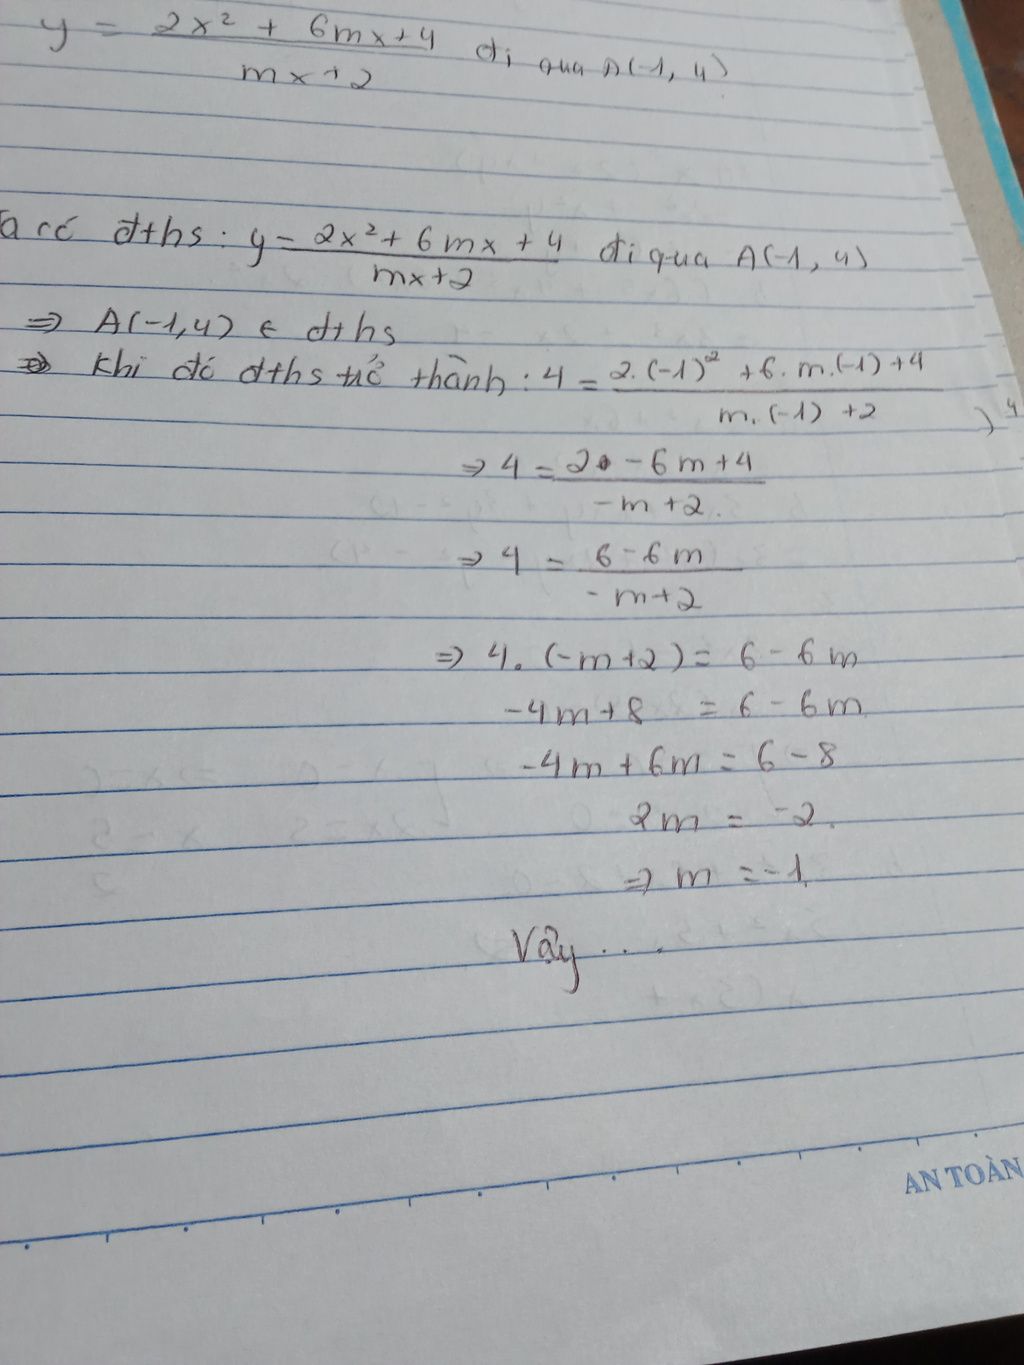 y = (2x² + 6mx+4)/(mx+2) đi qua A(-1, 4)
Ta có đths: y = (2x² + 6mx + 4)/(mx+2) đi qua A(-1, 4)
⇒ A(-1,4) ∈ đths
⇒ Khi đó đths trở thành: 4 = (2.(-1)² + 6.m.(-1) + 4)/(m.(-1) + 2)
⇒ 4 = (2 - 6m + 4)/(-m + 2)
⇒ 4 = (6 - 6m)/(-m+2)
⇒ 4.(-m+2) = 6 - 6m
-4m+8 = 6 - 6m
-4m + 6m = 6 - 8
2m = -2
⇒ m = -1
Vậy ....
AN TOÀN